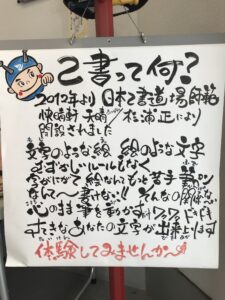 己書って何?
2012年より 日本己書道場師範
快晴軒 天晴 松浦正により
開設されました
文字のような絵 絵のような文字
むずかしいルールもなく
字がにがて 絵なんてもっと苦手 筆
ん〜 書けない!! そんなの関係ない
心のまま 筆を動かすだけ ワクワク ドキドキ
すてきなあなたの文字が出来上ります
体験してみませんか